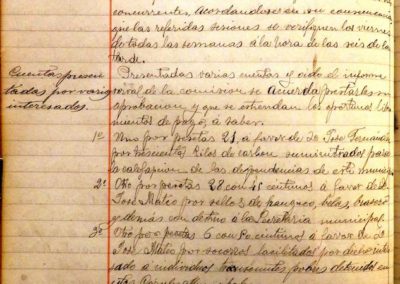 concurrentes, acordandose en su consecuencia
que las referidas sesiones se verifiquen los viernes
de todas las semanas á la hora de las seis de la
tarde.
Cuentas presen-
tadas por varios
interesados.
Presentadas varias cuentas y oido el informe
verbal de la comision se acuerda prestarles su
aprobacion, y que se estiendan los oportunos libra-
mientos de pago, á saber.
1º Uno por pesetas 21, á favor de Dn Jose Fernandez
por trescientos kilos de carbon suministrados para
la calefaccion de las dependencias de este municipio
2º Otro por pesetas 28 con centimos á favor de Dn
José Mateo por sellos de franqueo, velas, brasero
y demás con destino á la Secretaria municipal.
3º Otro por pesetas 6 con 80 centimos á favor de Dn
Jose Mateo por socorros facilitados por dicho inter-
sado á individuos transeuntes pobres detenidos en